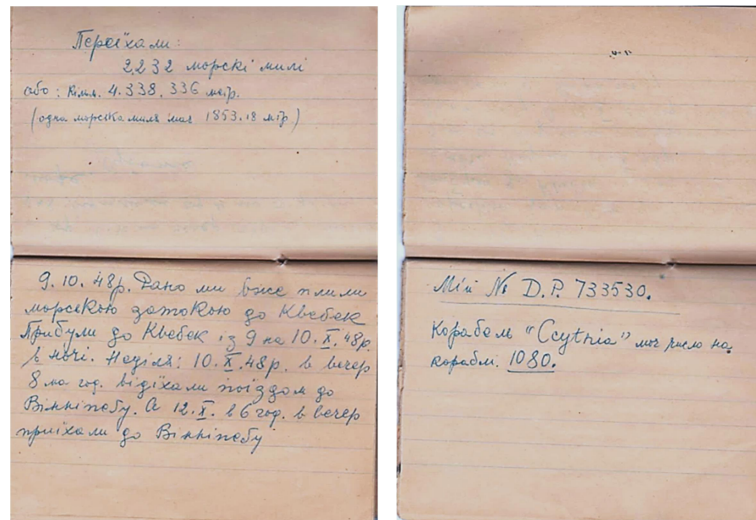 Переїхали:
2232 морскі милі
або: кільм. 4.338.336 метр.
(одна морска миля має 1853.18 мтр.)
9.10.48р. Рано ми вже плили
морскою затокою до Квебек
Прибули до Квебек із 9 на 10.X.48р.
в ночі. Неділя: 10.X.48р. в вечер
8 ма год. відїхали поїздом до
Вінніпегу. А 12.X. в 6 год. в вечер
приїхали до Вінніпегу
Мій № D.P. 733530.
Корабель "Ccythia" моє число на
кораблі. 1080.